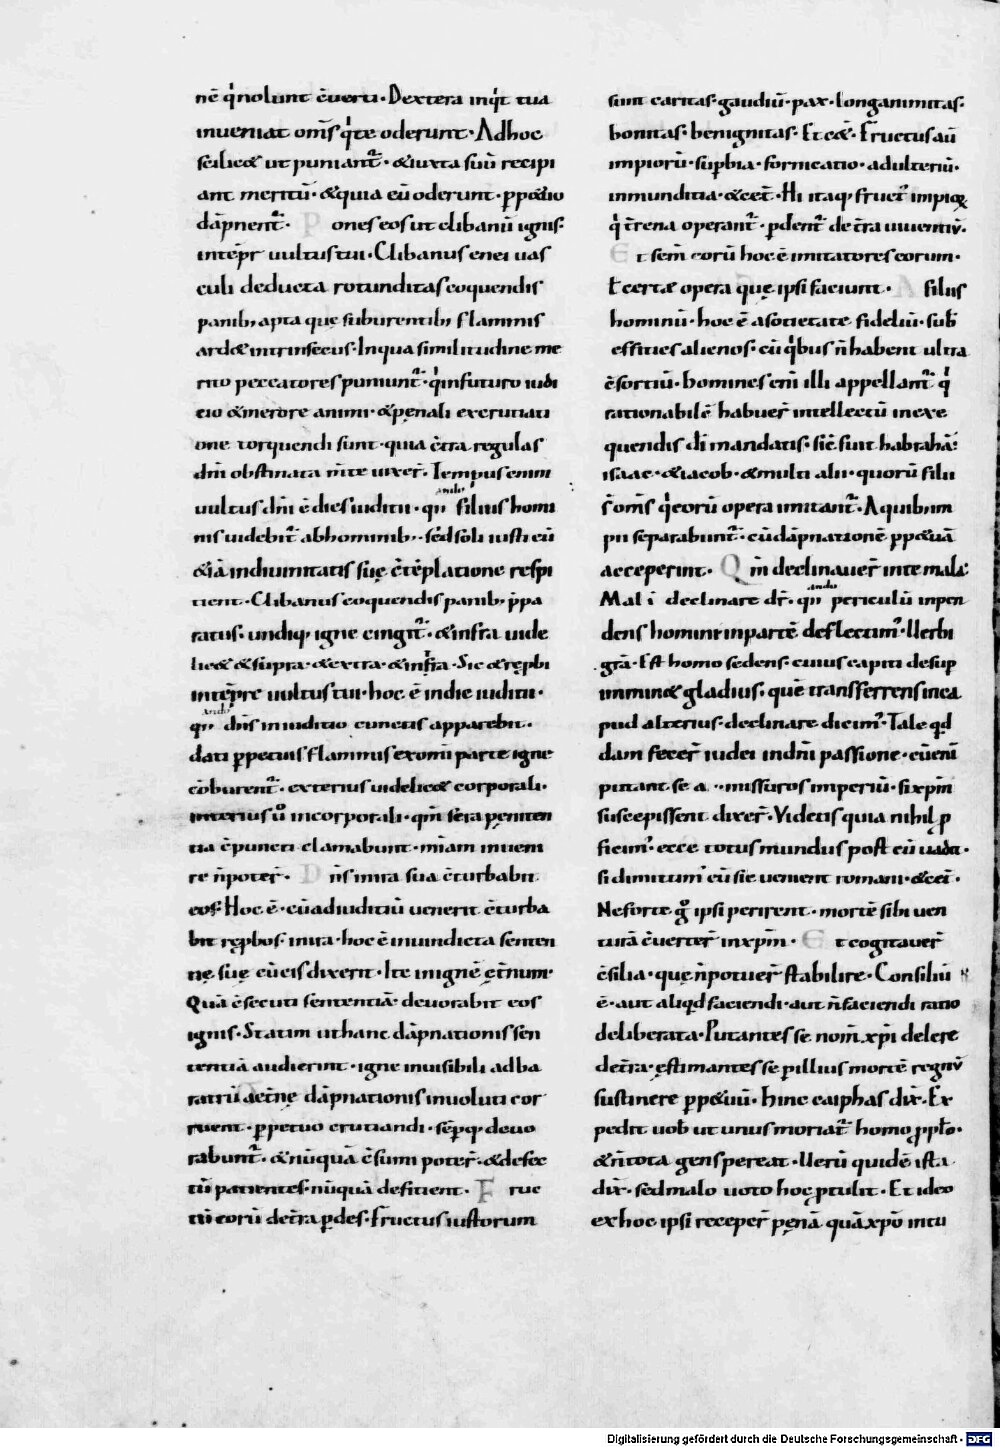 nē qͥ nolunt c̄verti. Dextera inqͥt tua
inueniat om̄s qͥ te oderunt. Ad hoc
scilic& ut puniant᷑. & iuxta suū recipi
ant meritū. & quia eū oderunt. ꝑp&uo
dāpnent᷑. Pones eos ut clibanū ignis.
intēpr̄ uultus tui. Clibanus enei uas
culi deducta rotunditas coquendis
panib; apta quę sub urentib; flammis
ard& intrinsecus. In qua similitudine me
rito peccatores puniunt᷑. qͥ in futuro iudi
cio & merore animi. & pęnali excrutiati
one torquendi sunt. quia c̄tra regulas
dn̄i obstinata m̄te uixer̄. Tempus enim
uultus dn̄i ē dies iuditii. qn̄ filius homi
nis uidebit᷑ ab hominib;. sed soli iusti eū
& iā in diuinitatis suę c̄tēplatione respi
tient. Clibanus coquendis panib; p̄pa
ratus. undiq; igne cingit᷑. & infra uide
lic& & supra. & extra & infra. Sic & rep̱bi
in tēpre uultus tui. hoc ē in die iuditii.
qn̄ dn̄s in iuditio cunctis apparebit.
dati ꝑpetuis flammis ex om̄i parte igne
c̄burent᷑. exterius uidelic& corporali.
interius ů incorporali. qm̄ sera pęniten
tia c̄puncti clamabunt. mīam inueni
re n̄ poter̄. Dn̄s in ira sua c̄turbabit
eos. Hoc ē. cū ad iuditiū uenerit c̄turba
bit rep̱bos. in ira. hoc ē in uindicta senten
tię suę cū eis dixerit. Ite in ignē ęt̄num.
Quā c̄secuti sententiā deuorabit eos
ignis. Statim ut hanc dāpnationis sen
tentiā audierint. igne inuisibili ad ba
ratrū aet̄nę dāpnationis inuoluti cor
ruent. ꝑpetuo crutiandi. sēp̱q; deuo
rabunt᷑. & nūquā c̄sumi poter̄. & defec
tū patientes. nūquā defitient. Fruc
tū eorū de t̄ra ꝑdes. Fructus iustorum
sunt caritas. gaudiū. pax. longanimitas.
bonitas. benignitas. Et c&̄. Fructus aū
impiorū. suꝑbia. fornicatio. adulteriū.
inmunditia. & cet̄. Hi itaq; fruct᷒ impioꝝ
qͥ t̄rena operant᷑. ꝑdent᷑ de t̄ra uiuentiū.
Et sem̄ eorū hoc ē imitatores eorum.
Et certę opera quę ipsi faciunt. A filiis
hominū. hoc ē a sotietate fidelū. sub
effities alienos. cū qͥbus n̄ habent ultra
c̄sortiū. homines eni illi appellant᷑ qͥ
rationabilē habuer̄ intellectū in exe
quendis dī mandatis. sic̄ sunt habrahā.
isaac. & iacob. & multi alii. quorū filii
s̄ om̄s qͥ eorū opera imitant᷑. A quib im
pii separabunt᷑. cū dāpnationē ꝑp&uā
acceperint. Qm̄ declinauer̄ in te mala.
Mali declinare dr̄. qn̄ periculū inpen
dens homini in partē deflectim᷒. Uerbi
grā. Est homo sedens. cuius capiti desuꝑ
immin& gladius. quē transferrens in ca
pud alterius. declinare dicim᷒. Tale qd
dam fecer̄ iudei in dn̄i passione. cū eni
putant se a missuros imperiū. si xp̄m
suscepissent dixer̄. Videtis quia nihil ꝓ
ficim᷒. ecce totus mundus post eū uadit.
si dimittim᷒ eū sic uenient romani. & cet̄.
Ne forte g̊ ipsi perirent. mortē sibi uen
turā c̄verter̄ in xp̄m. Et cogitauer̄
c̄silia. quę n̄ potuer̄ stabilire. Consiliū
ē. aut aliqd faciendi. aut n̄ faciendi ratio
deliberata. Putantes se nom̄ xp̄i delere
de t̄ra. ęstimantes se ꝑ illius mortē regnū
sustinere ꝑp&uū. hinc caiphas dix̄. Ex
pedit uob̄ ut unus moriat᷑ homo ꝓ pp̄lo.
& n̄ tota gens pereat. Uerū quidē ista
dix̄. sed malo uoto hoc ꝓtulit. Et ideo
ex hoc ipsi receper̄ pęnā quā xp̄o intu